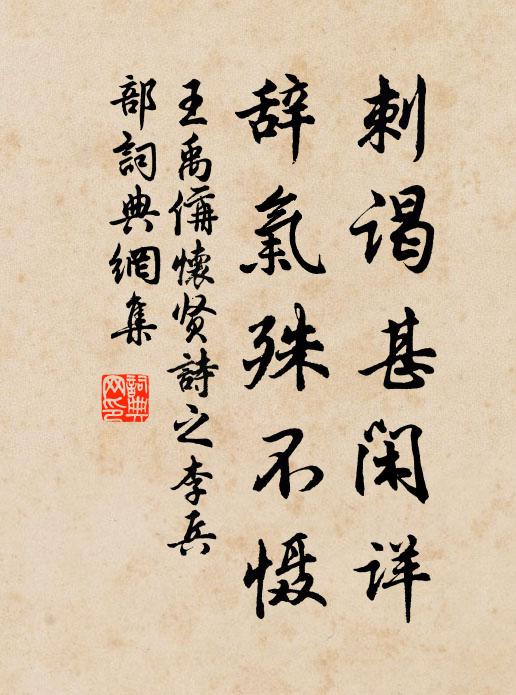 刺谒甚闲详
辞氣殊不慑
王禹偁懷贤詩之李兵
部詞典網集
詞典网印